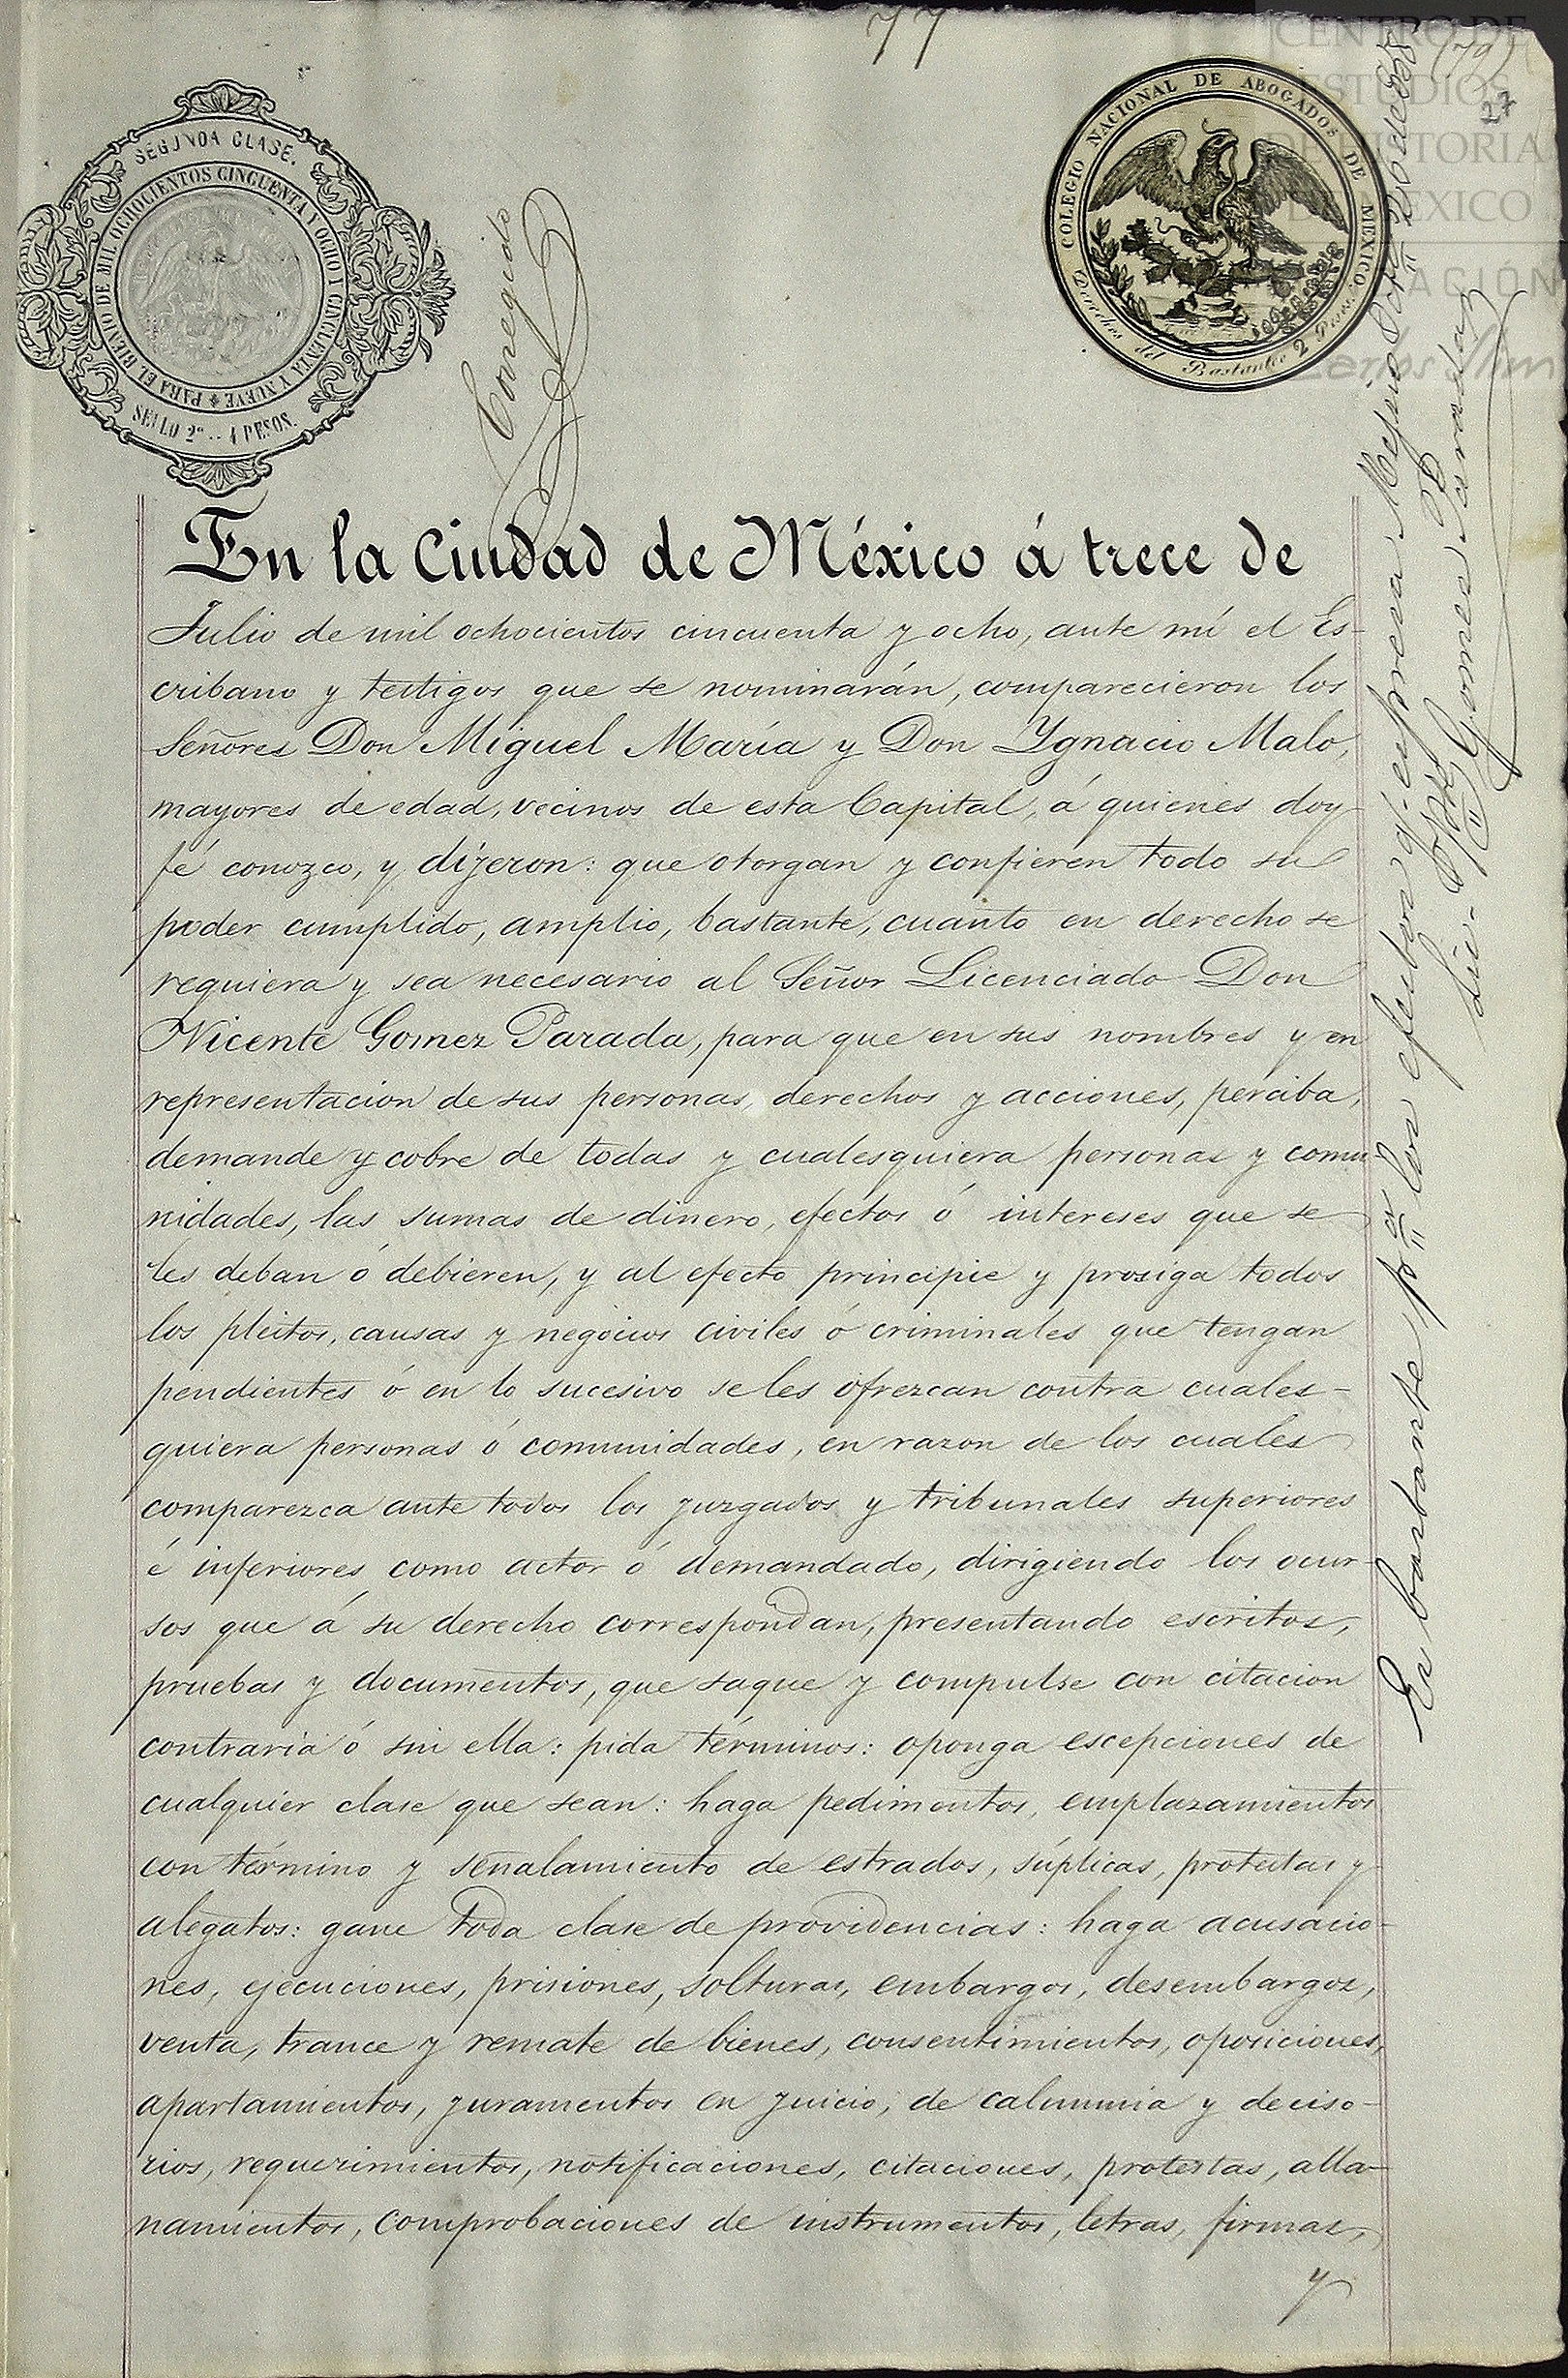 77
(79)
27
CENTRO DE
ESTUDIOS
DE HISTORIA
DE MEXICO
SEGUNDA CLASE.
PARA EL BIENIO DE MIL OCHOCIENTOS CINCUENTA Y OCHO Y CINCUENTA Y NUEVE
SELLO 2º .. 4 PESOS.
Corregido
COLEGIO NACIONAL DE ABOGADOS DE MEXICO.
Derechos del Bastanteo 2 Pesos.
En la Ciudad de México á trece de
Julio de mil ochocientos cincuenta y ocho, ante mí el Es-
cribano y testigos que se nominarán, comparecieron los
Señores Don Miguel María y Don Ygnacio Malo,
mayores de edad, vecinos de esta Capital, á quienes doy
fé conozco, y dijeron: que otorgan y confieren todo su
poder cumplido, amplio, bastante, cuanto en derecho se
requiera y sea necesario al Señor Licenciado Don
Vicente Gomez Parada, para que en sus nombres y en
representacion de sus personas, derechos y acciones, perciba,
demande y cobre de todas y cualesquiera personas y comu-
nidades, las sumas de dinero, efectos ó intereses que se
les deban ó debieren, y al efecto principie y prosiga todos
los pleitos, causas y negocios civiles ó criminales que tengan
pendientes ó en lo sucesivo se les ofrezcan contra cuales-
quiera personas ó comunidades, en razon de los cuales
comparezca ante todos los juzgados y tribunales superiores
é inferiores como actor ó demandado, dirigiendo los ocur-
sos que á su derecho correspondan, presentando escritos,
pruebas y documentos, que saque y compulse con citacion
contraria ó sin ella: pida términos: oponga escepciones de
cualquier clase que sean: haga pedimentos, emplazamientos
con término y señalamiento de estrados, súplicas, protestas y
alegatos: gane toda clase de providencias: haga acusacio-
nes, ejecuciones, prisiones, solturas, embargos, desembargos,
venta, trance y remate de bienes, consentimientos, oposiciones,
apartamientos, juramentos en juicio, de calumnia y deciso-
rios, requerimientos, notificaciones, citaciones, protestas, alla-
namientos, comprobaciones de instrumentos, letras, firmas,
y
Es bastante pª los efectos q. expresa. Mejico Octe 26 de 858
Lic. Gomez Parada